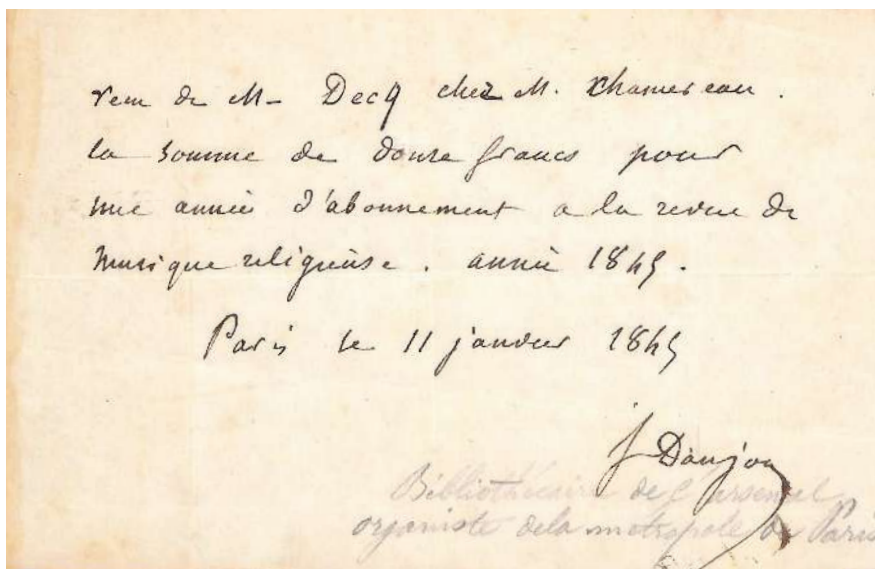 recu de M- Decq chez M. Chamereau.
la somme de douze francs pour
une année d'abonnement a la revue de
musique religieuse. année 1845.
Paris le 11 janvier 1845
f Danjou
Bibliothécaire de l'arsenal
organiste de la metropole de Paris